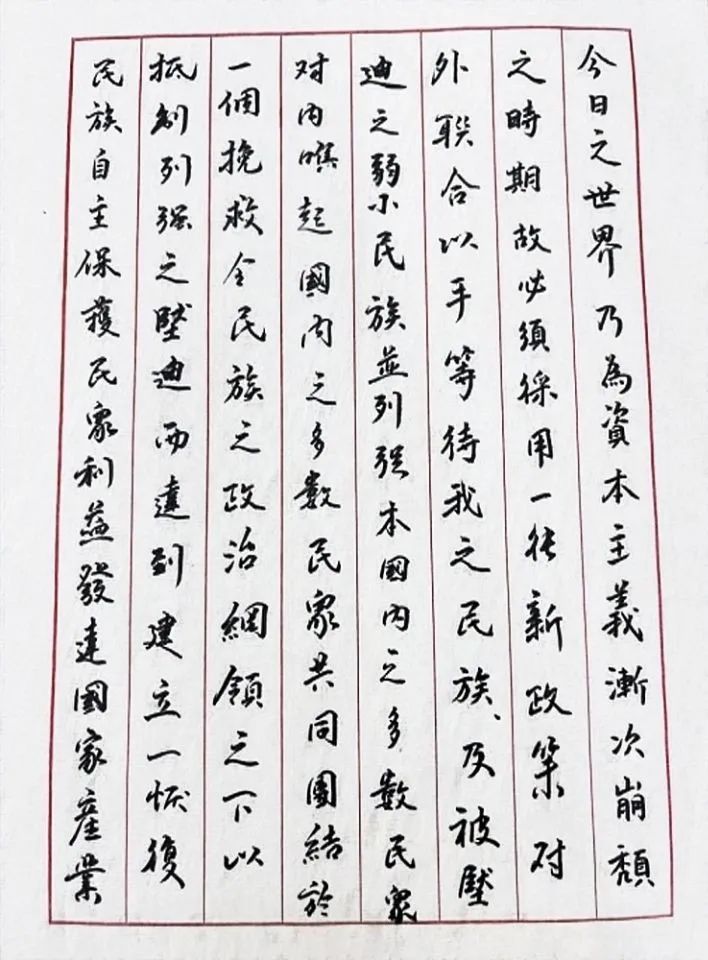 今日之世界乃為資本主義漸次崩頹
之時期故必須採用一種新政策对
外聯合以平等待我之民族、及被壓
迪之弱小民族並列强本國内之多數民衆
对内喚起國内之多數民衆共同團結於
一個挽救全民族之政治綱領之下以
抵制列强之壓迪而達到建立一恢復
民族自主保護民衆利益發達國家産業